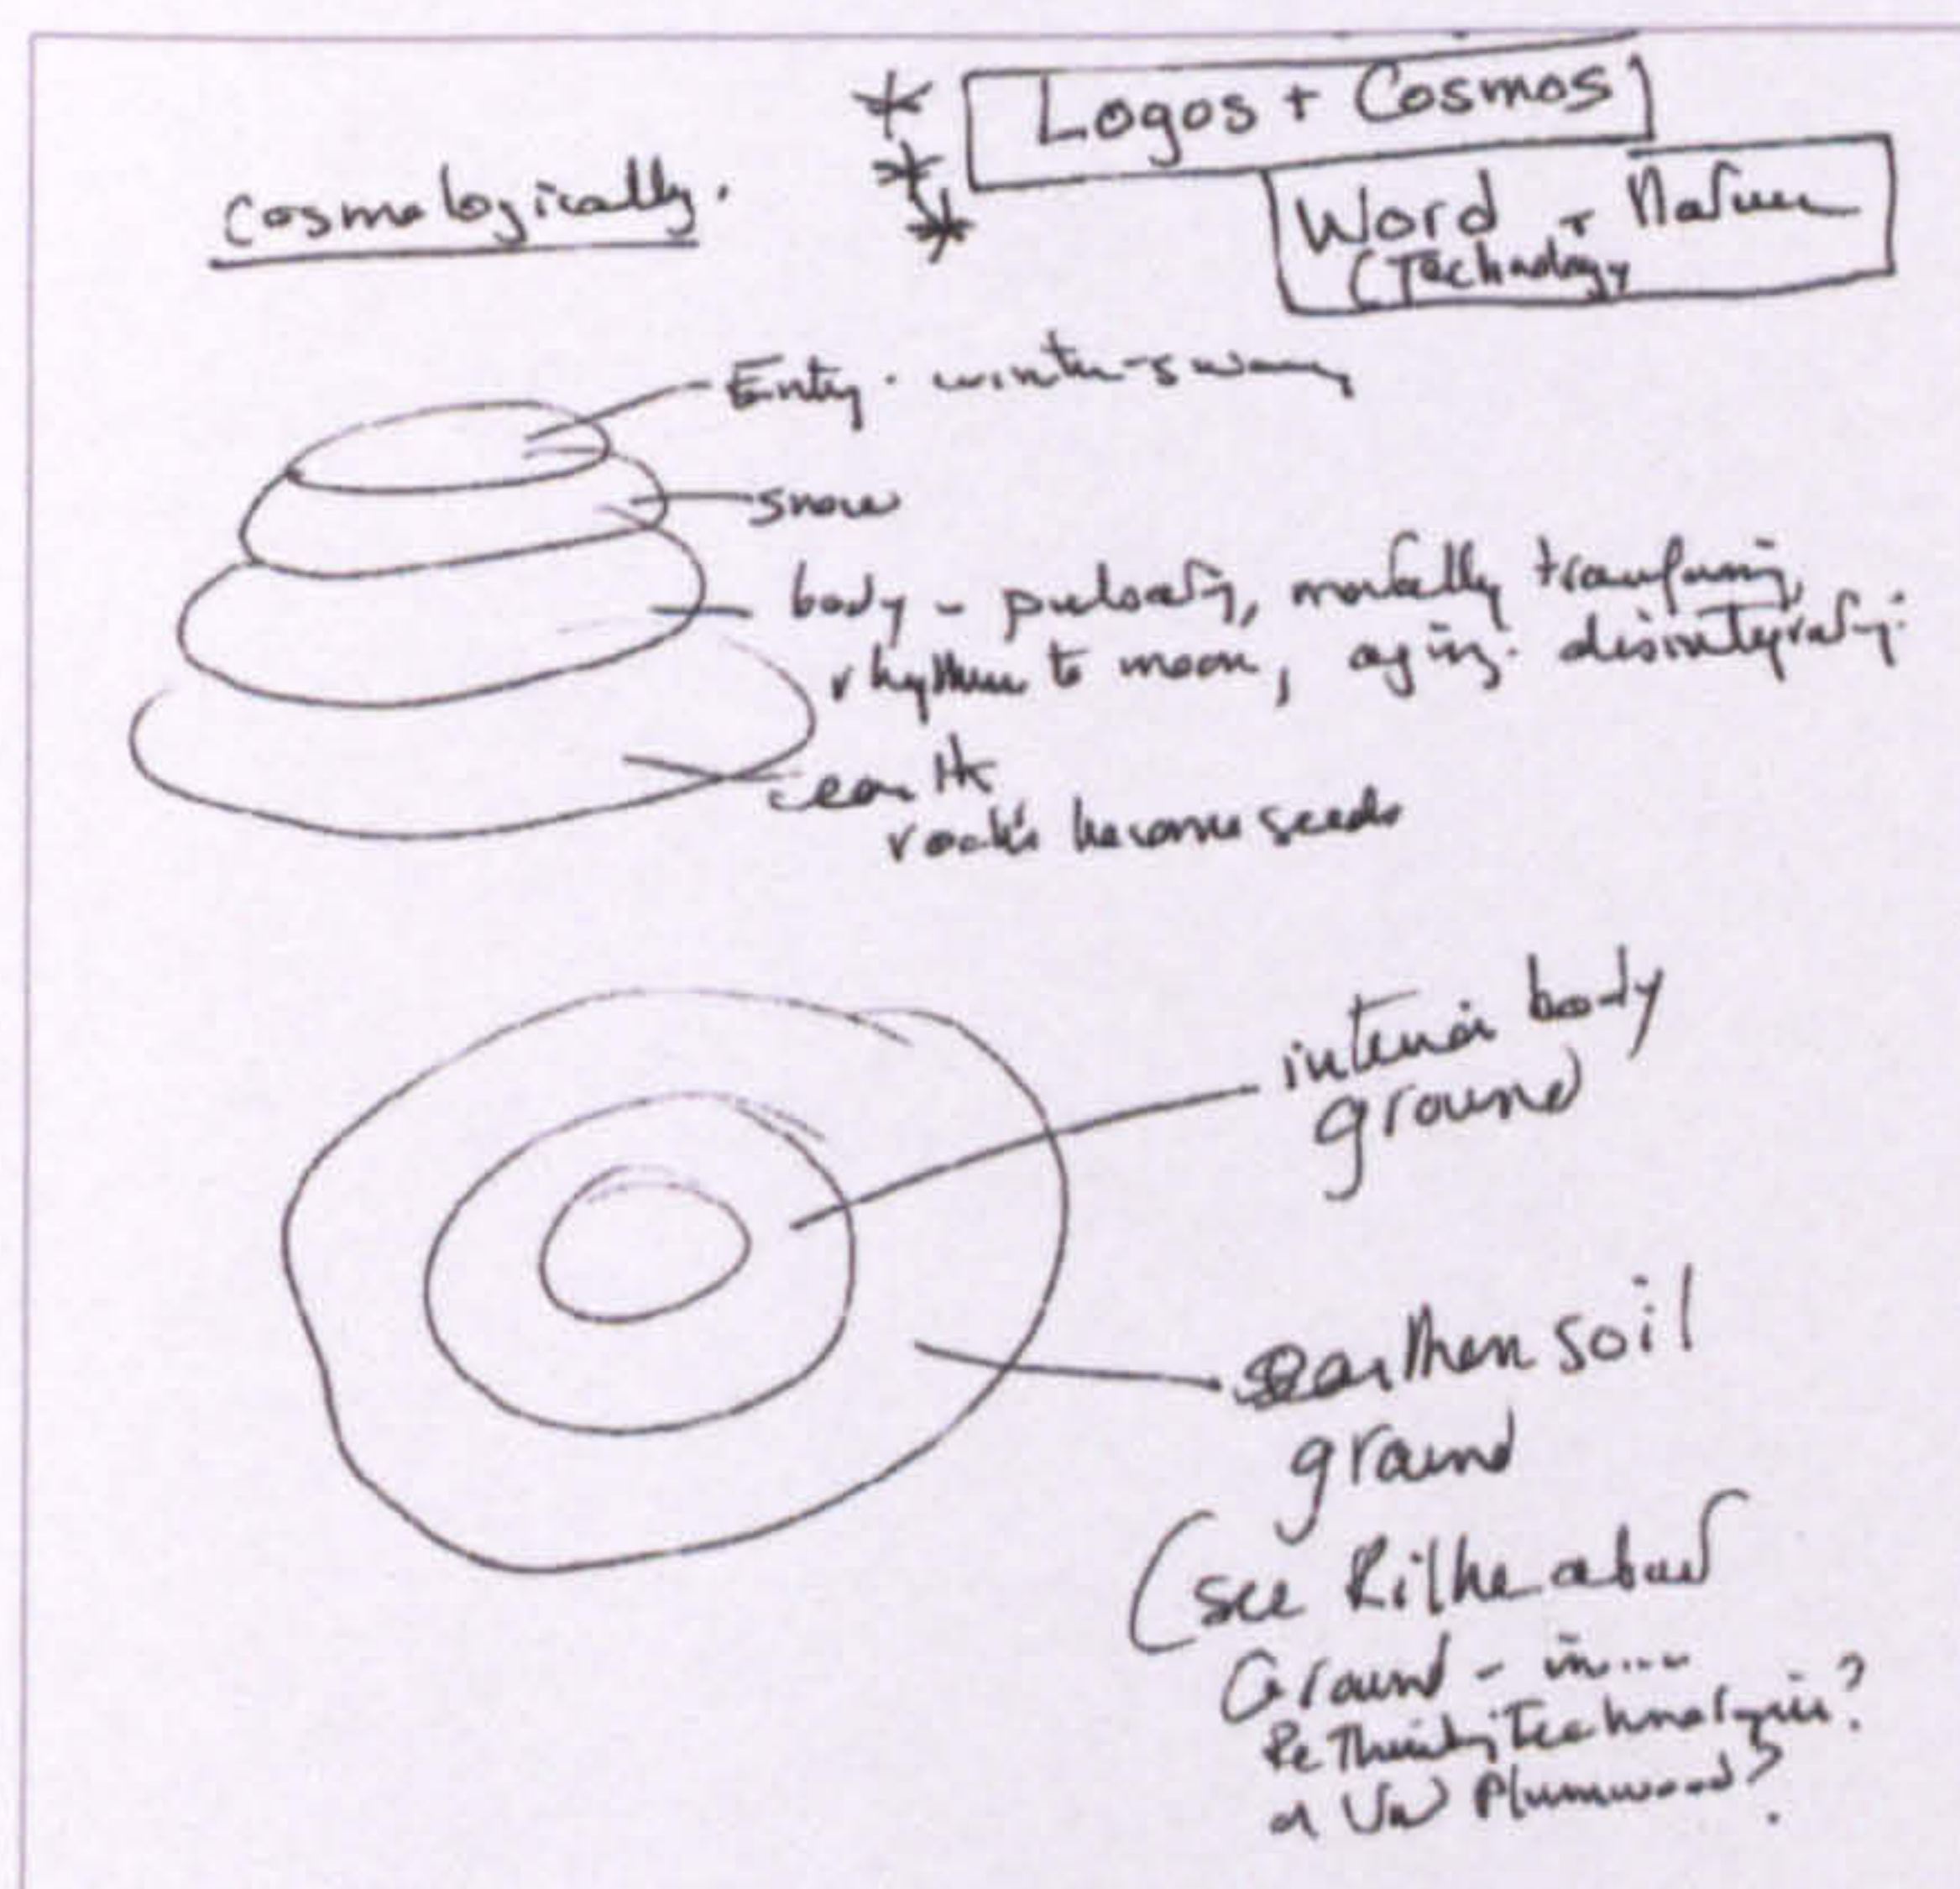 * Logos + Cosmos
*
*
cosmologically.
Word + Nature
(Technology
Entry - winter-
snow
body - pulsating, mortally transforming,
rhythm to moon, aging. disintegrating.
earth
rocks become seeds
interior body
ground
earthen soil
ground
(see Rilke about
Ground - in....
ReThinking Technologies?
or Val Plumwood?